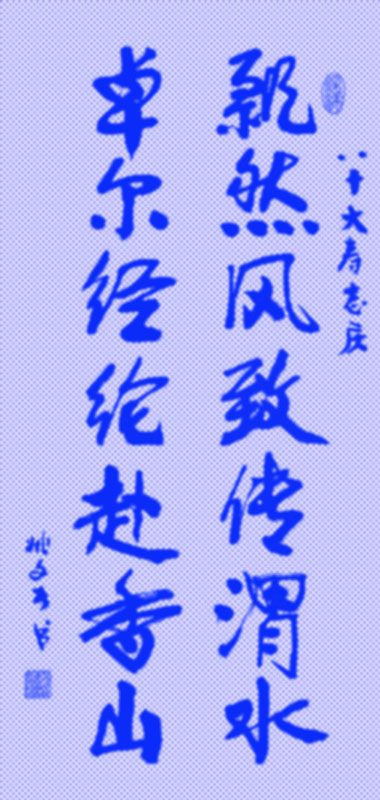 八十大寿志庆
飘然风致传渭水
卓尔经纶赴香山